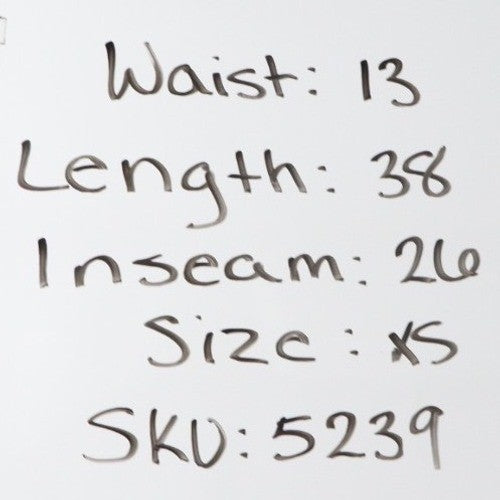 Waist: 13
Length: 38
Inseam: 26
Size: XS
SKU: 5239